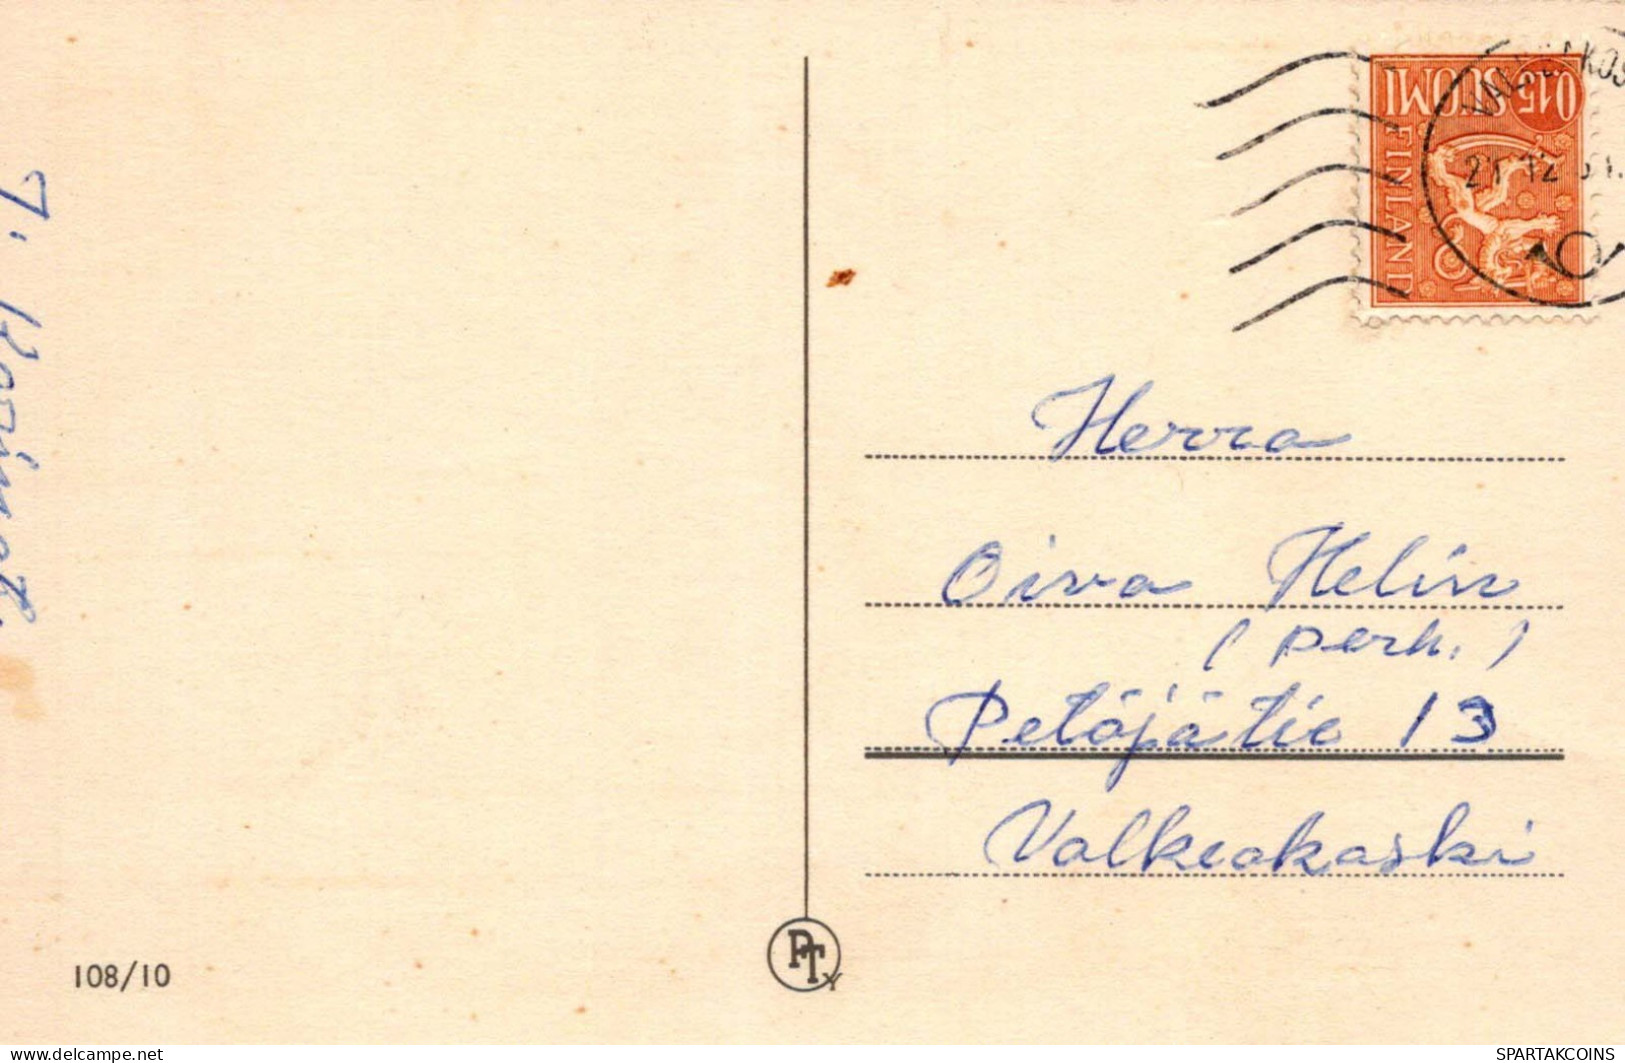 0.15 SUOMI
FINLAND
21 12
Herra
Oiva Helin
(perh.)
Petäjätie 13
Valkeakoski
108/10
PTy
delcampe.net
SPARTAKCOINS